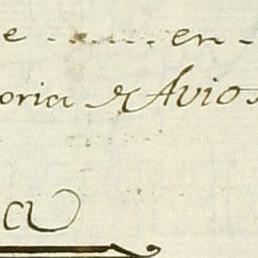 e - - - - en -
oria de Avio
a